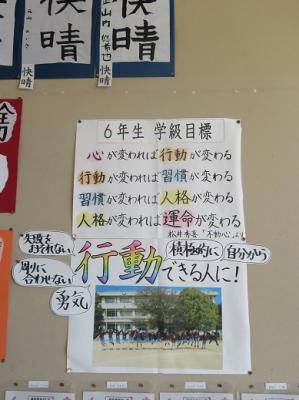 快晴
快晴
快晴
山内 悠希也
快晴
快晴
6年生 学級目標
心が変われば行動が変わる
行動が変われば習慣が変わる
習慣が変われば人格が変わる
人格が変われば運命が変わる
松井秀喜「不動心」より
失敗をおそれない
周りに合わせない
勇気
積極的に
自分から
行動できる人に!